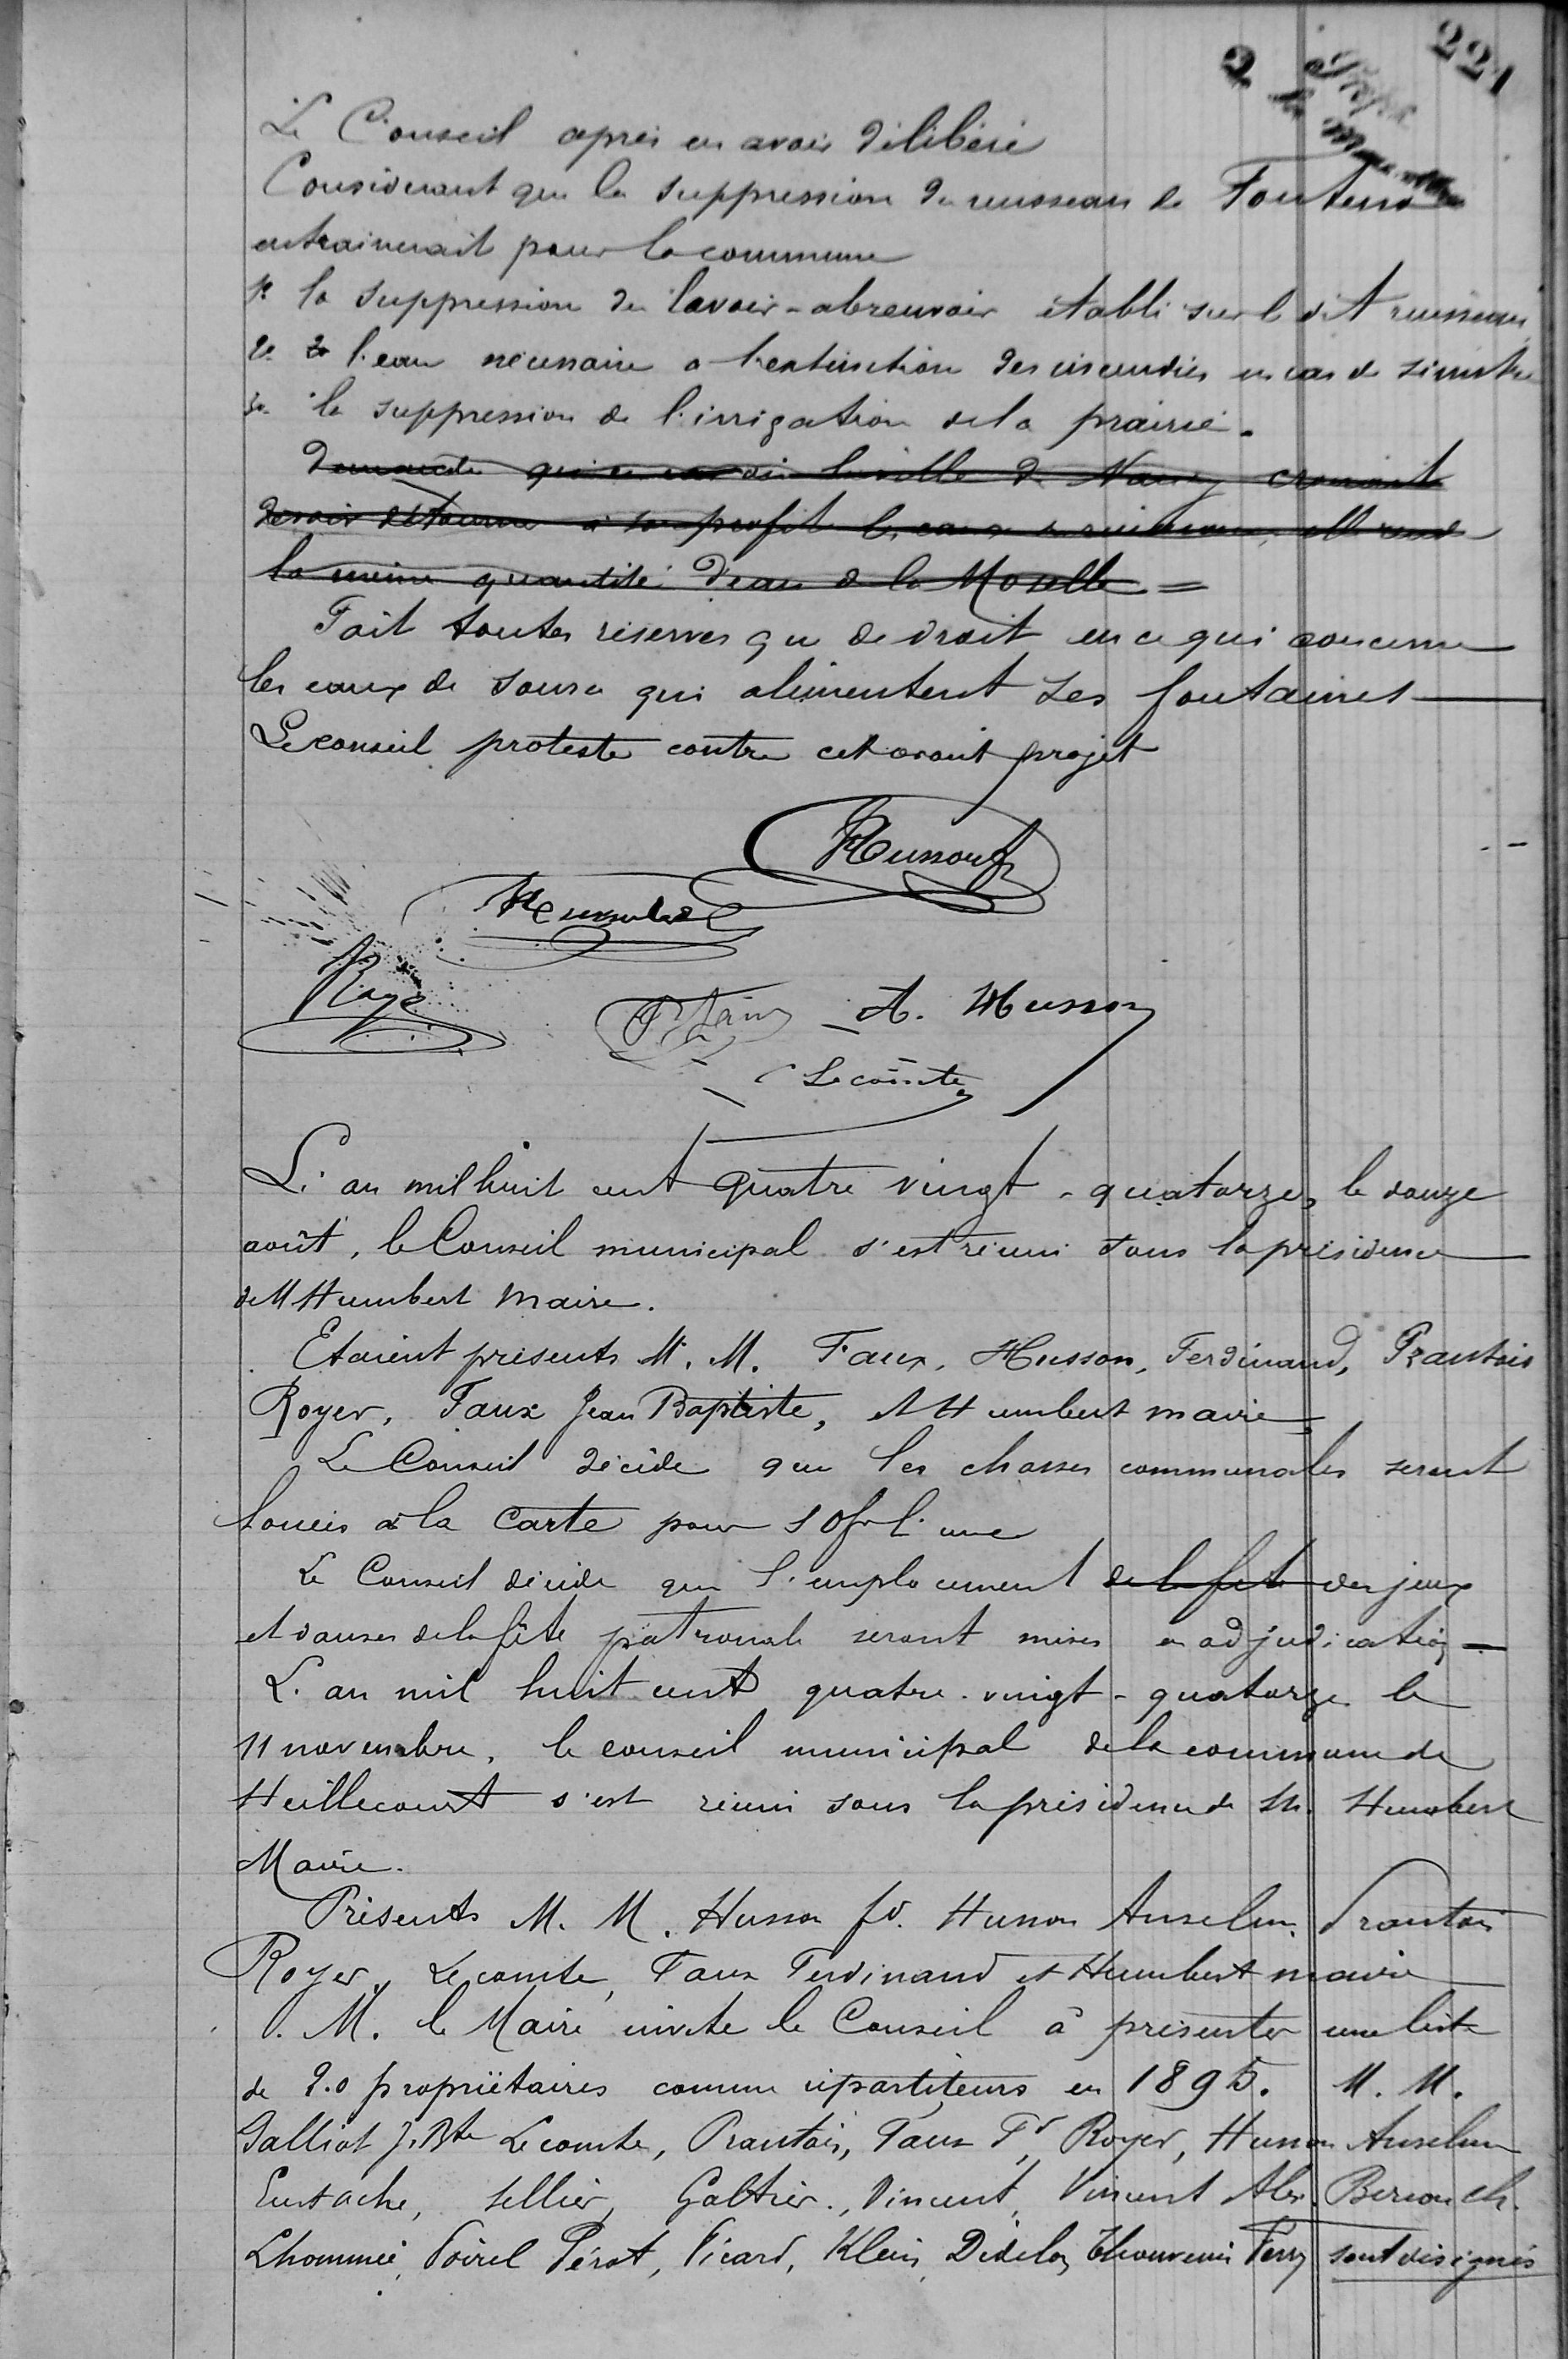 221
2
Le Conseil après en avoir délibéré
Considerant que la suppression du ruisseau de
entrainerait pour la commune
1º la suppression du lavoir-abreuvoir établi sur le dit ruisseau
2º l'eau nécessaire a l'extinction des incendies en cas de sinistre
3º la suppression de l'irrigation de la prairie.
Demande qu'en cas où la ville de Nancy croirait
devoir détourner à son profit les eaux du ruisseau, elle rende
la même quantité d'eau de la Moselle =
Fait toutes réserves que de droit en ce qui concerne
les eaux de source qui alimentent ses fontaines
Le conseil proteste contre cet avant projet
Husson
Humbert
Royer
A. Husson
Lecomte
L'an mil huit cent quatre vingt-quatorze, le douze
août, le Conseil municipal s'est réuni sous la présidence
de M Humbert Maire.
Etaient présents M. M. Faux, Husson, Ferdinand, Prantois
Royer, Faux Jean Baptiste, et Humbert maire,
Le Conseil décide que les chasses communales seront
louées à la Carte pour 10f l'une
Le Conseil décide que l'emplacement de la fete des jeux
et danses de la fête patronale seront mises en adjudication
L'an mil huit cent quatre-vingt-quatorze le
11 novembre, le conseil municipal de la commune de
Heillecourt s'est réuni sous la présidence de M. Humbert
Maire.
Présents M. M. Husson fd. Husson Anselme, Prantois
Royer, Lecomte, Faux Ferdinand et Humbert maire
M. le Maire invite le Conseil à présenter une liste
de 20 propriétaires comme répartiteurs en 1895. M. M.
Galliot J. Bte Lecomte, Prantois, Faux Fd, Royer, Husson Anselme
Eustache, Sellier, Galtier, Vincent, Vincent Alex. ch.
Lhommée, Poirel Pérot, Picard, Klein, Didelot, Thouvenin Ferry sont désignés